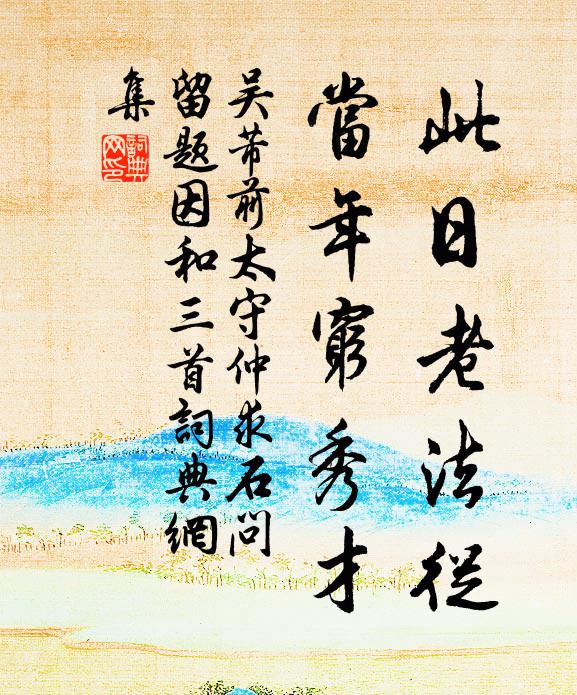 此日老法從
當年窮秀才
吴芾前太守仲求石問
留題因和三首詞典網
集
詞典
网印